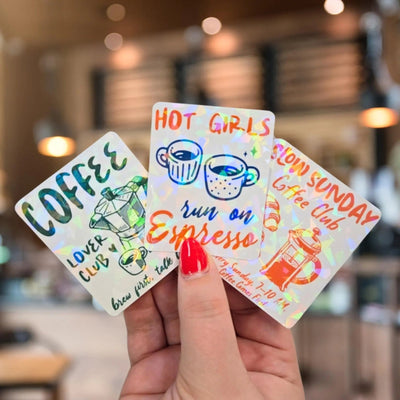 COFFEE
LOVER
CLUB
brew first, talk
HOT GIRLS
run on
Espresso
SLOW SUNDAY
Coffee Club
Sunday, 7-10
Coffee Comes First